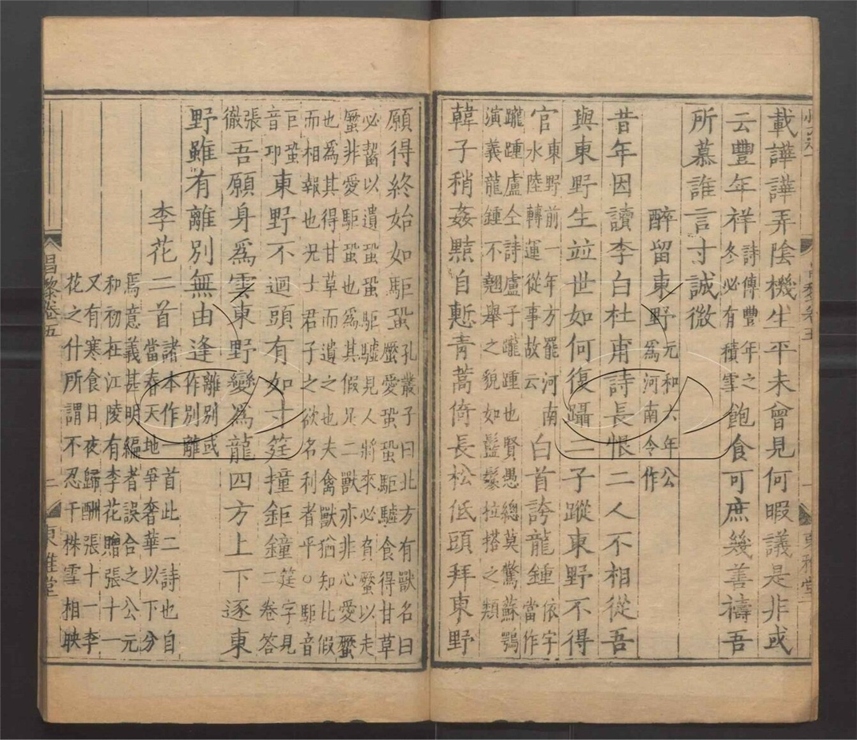 載譁譁弄陰機生平未曾見何暇議是非或
云豐年祥詩傳豐年之冬必有積雪飽食可庶幾善禱吾
所慕誰言寸誠微
醉留東野元和六年公為河南令作
昔年因讀李白杜甫詩長恨二人不相從吾
與東野生竝世如何復躡二子蹤東野不得
官東野前一年方罷河南水陸轉運從事故云白首誇龍鍾依字當作
躘踵盧仝詩盧子躘踵也賢愚總莫驚蘇鶚
演義龍鍾不翹舉之貌如鬖拉搭之類
韓子稍姦黠自慙青蒿倚長松低頭拜東野
願得終始如駏蛩孔叢子曰北方有獸名曰
蟨愛蛩蛩駏驉食得甘草
必齧以遺蛩蛩駏驉見人將來必負蟨以走
蟨非愛駏蛩也為其假足二獸亦非心愛蟨
也為其得甘草而遺之也夫禽獸猶知比假
而相報也况士君子之欲名利者乎○駏音
巨蛩音邛東野不迴頭有如寸筳撞鉅鐘筳字見二卷答
張徹吾願身爲雲東野變為龍四方上下逐東
野雖有離別無由逢離別或作別離
李花二首諸本作一首此二詩也自
當春天地爭奢華以下分
焉意義甚明編者誤合之公元
和初在江陵有李花贈張十一
又有寒食日夜歸酬張十一李
花之什所謂不忍千株雪相映
昌黎卷五
二
東雅堂
一
東雅堂